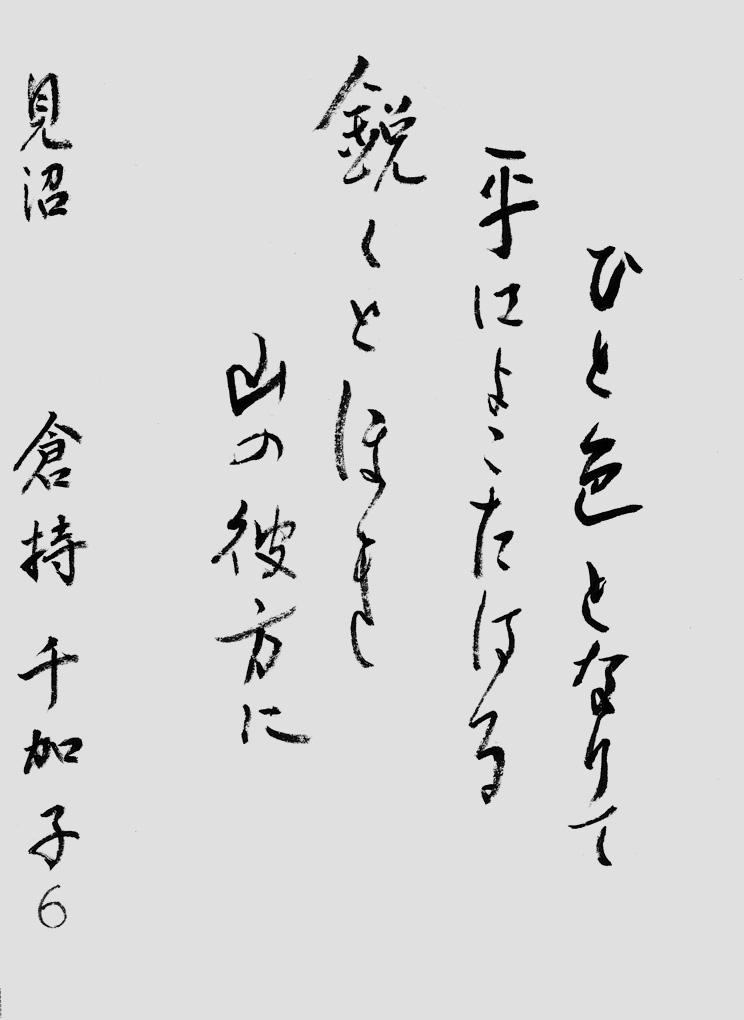 ひと色となりて
平によこたはる
鋭くとほき
山の彼方に
見沼 倉持 千加子 6